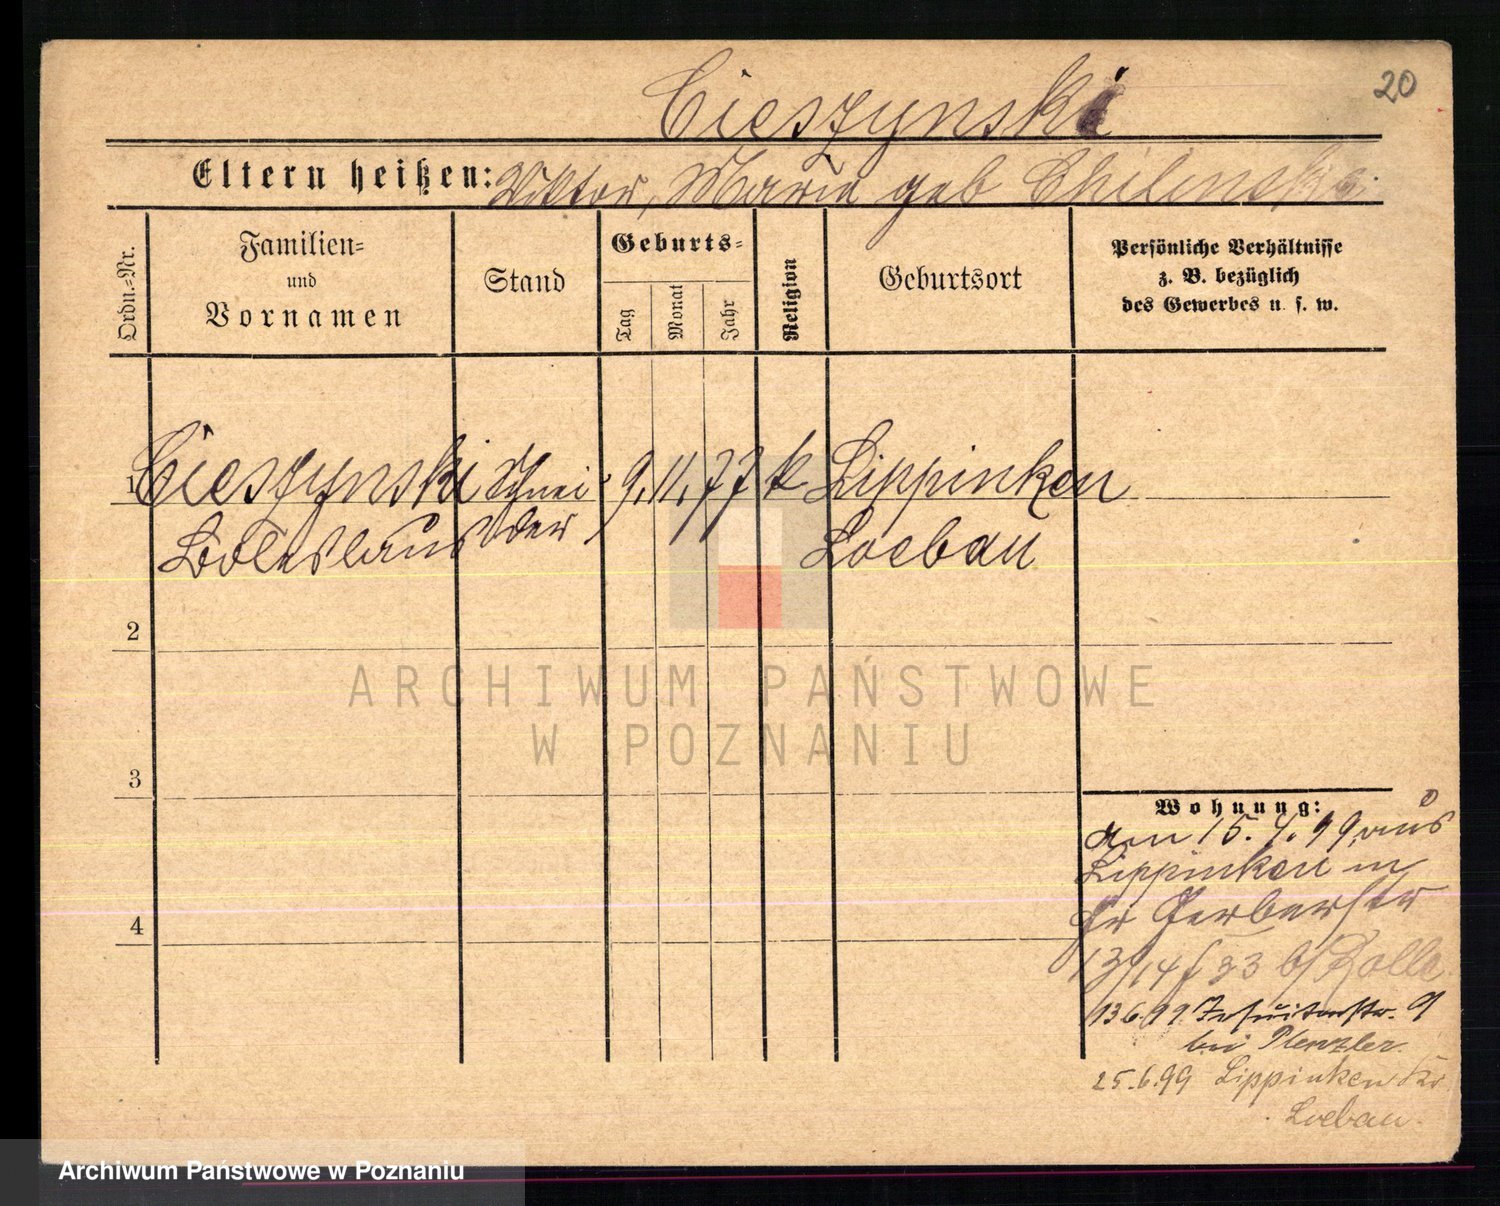 20
Cieszynski
Eltern heißen: Viktor, Maria geb Chilinska
Ordn.-Nr.
Familien-
und
Vornamen
Stand
Geburts-
Tag
Monat
Jahr
Religion
Geburtsort
Persönliche Verhältnisse
z. B. bezüglich
des Gewerbes u. s. w.
1 Cieszynski Schnei 9. 11. 77 k Lippinken
Boleslaus der Loebau
2
3
4
Wohnung:
am 15. 4. 99 aus
Lippinken in
Gerberstr
13/14 b/ Rolle
13.6.99 Jesuitenstr. 9
bei Plenzler.
25.6.99 Lippinken Kr
Loebau.
ARCHIWUM PAŃSTWOWE
W POZNANIU
Archiwum Państwowe w Poznaniu